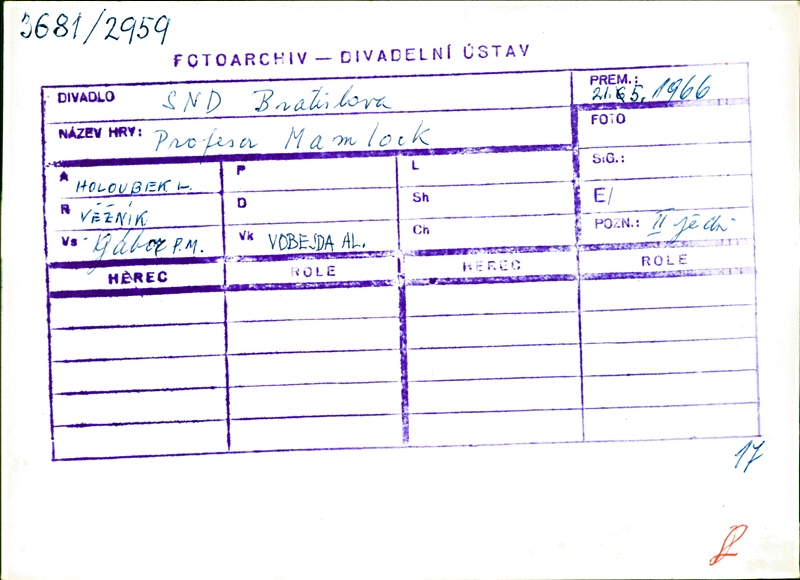 3681/2959
FOTOARCHIV — DIVADELNÍ ÚSTAV
DIVADLO SND Bratislava
PREM.: 21.65, 1966
NÁZEV HRY: Profesor Mamlock
FOTO
A HOLOUBEK L.
P
L
SIG.:
R VĚŽNIK
D
Sh
E/
Vs Gábor P.M.
Vk VOBEJDA AL.
Ch
POZN.: II jedn.
HEREC ROLE HEREC ROLE
17